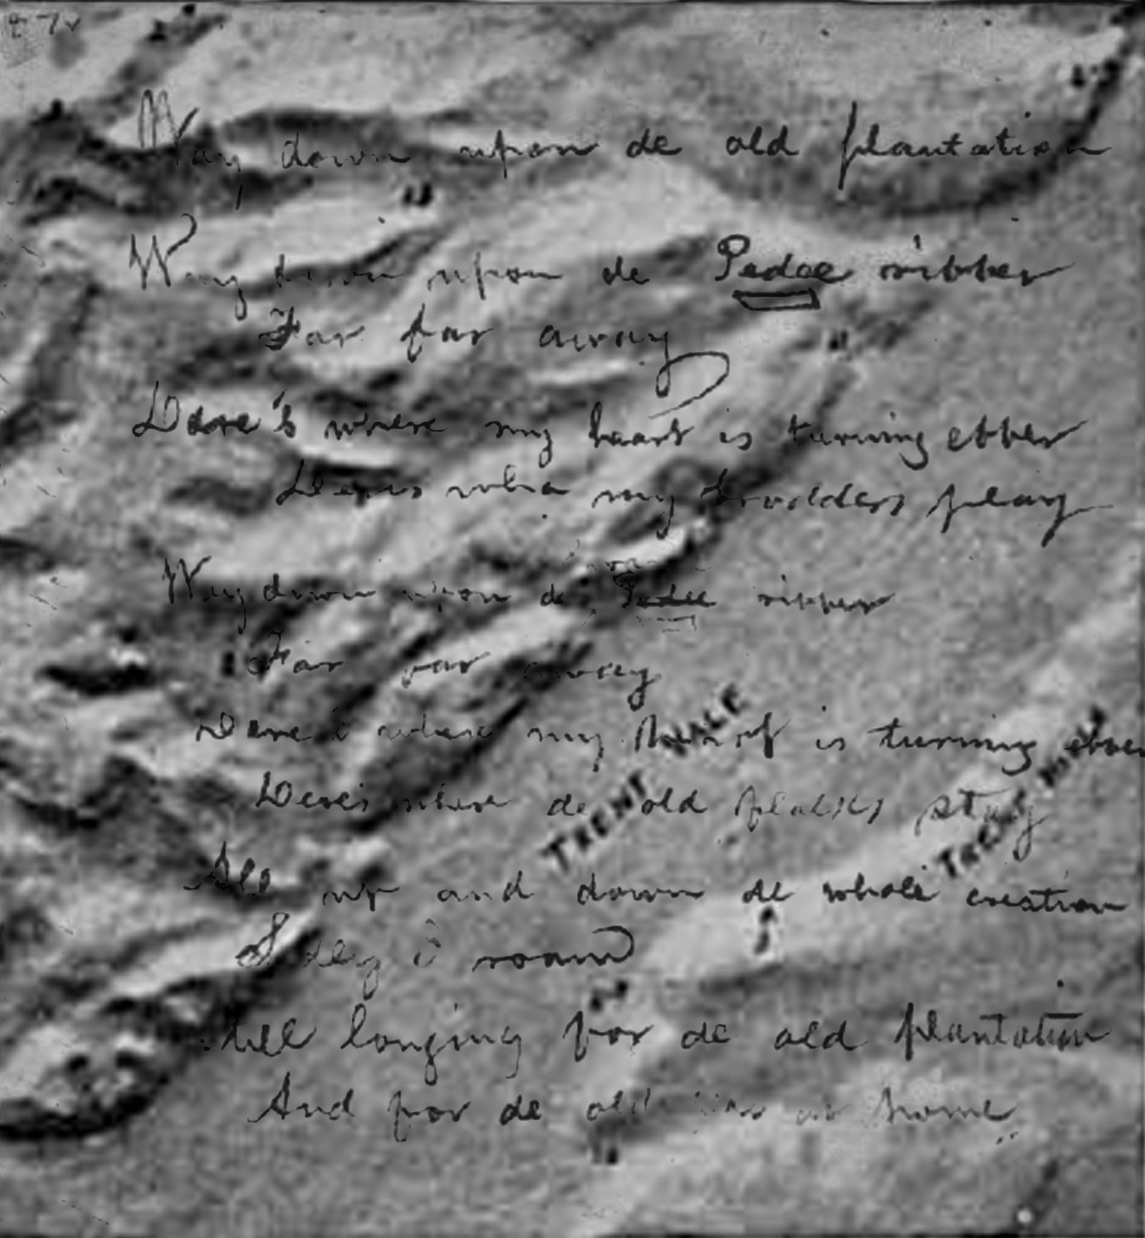 87v
Way down upon de old plantation
Way down upon de Pedee ribber
Far far away
Dere's where my heart is turning ebber
Dere's wha my brudders play
Way down upon de Pedee ribber
Far far away
Dere's where my heart is turning ebber
Deres where de old folks stay
TRENT VALE
All up and down de whole creation
Sadly I roam
Still longing for de old plantation
And for de old at home